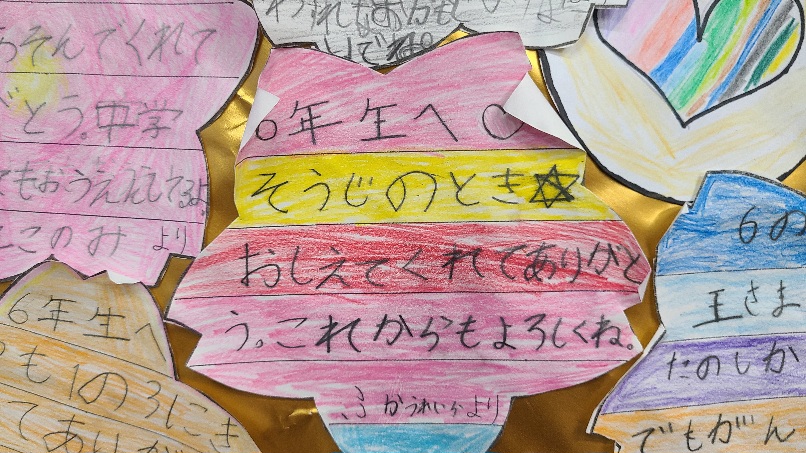 あそんでくれて
とう。中学
もおうえんしてるよ
このみ より
6年生へ♡
そうじのとき☆
おしえてくれてありがと
う。これからもよろしくね。
より
6年生へ
も1の3にき
てありが
6の
王さま
たのしか
でもがん